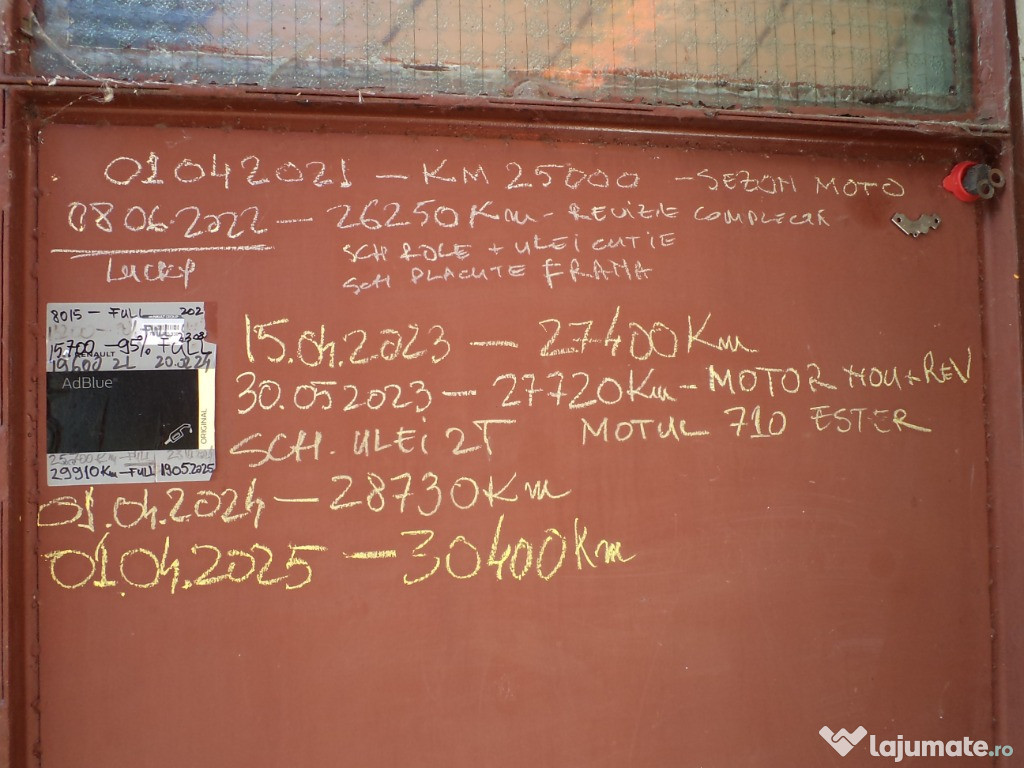 01042021 – KM 25000 – SEZON MOTO
08.06.2022 – 26250 Km – REVIZIE COMPLECAR
Lucky
SCH ROLE + ULEI CUTIE
SCH PLACUTE FRANA
8015 – FULL 202
15700 – 95% FULL
RENAULT
19600 2L 20.02.24
AdBlue
ORIGINAL
29910Km – FULL 19052025
15.04.2023 – 27400Km
30.05.2023 – 27720Km – MOTOR NOU + REV
SCH. ULEI 2T MOTUL 710 ESTER
01.04.2024 – 28730Km
01.04.2025 – 30400Km
lajumate.ro